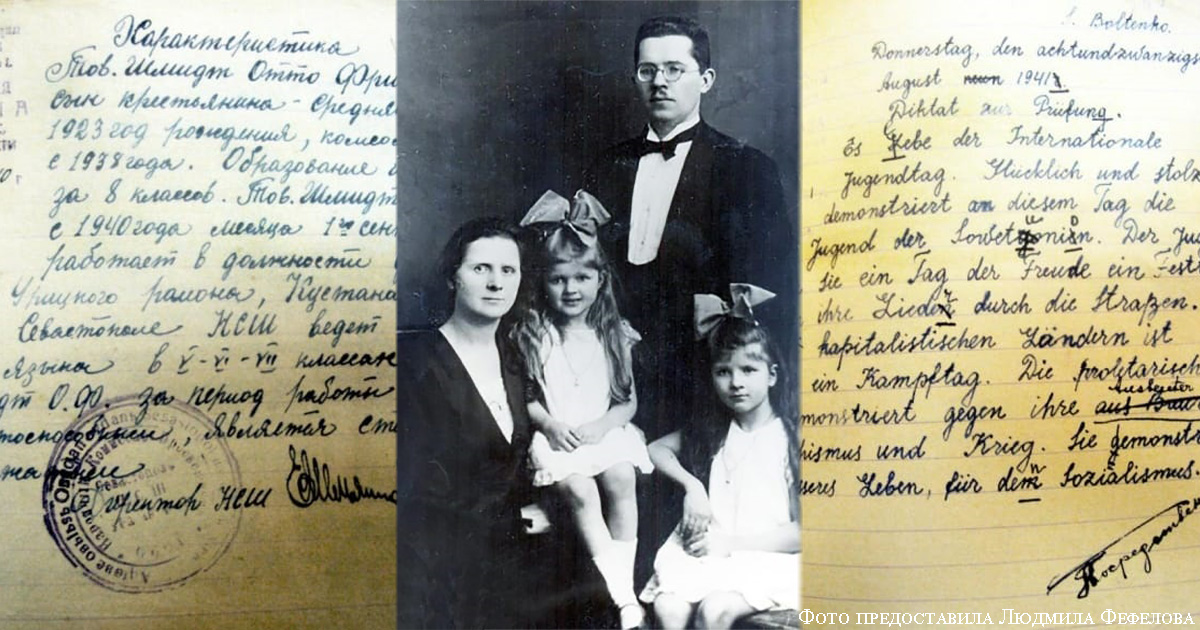 Характеристика
Тов. Шмидт Отто Фри
сын крестьянина - средня
1923 год рождения, комсо
с 1938 года. Образование
за 8 классов. Тов. Шмидт
с 1940 года месяца 1го сен
работает в должности
Урицкого района, Кустана
Севастополе НСШ ведет
языка в V-VI-VII классах
дт О.Ф. за период работы
тоспособным, является
Директор НСШ
S. Boltenko.
Donnerstag, den achtundzwanzigs
August 1941
Diktat zur Prüfung.
Es Lebe der Internationale
Jugendtag. Glücklich und stolz
demonstriert an diesem Tag die
Jugend der Der Ju
sie ein Tag der Freude ein Fest
ihre Lieder durch die Straßen.
kapitalistischen Ländern ist
ein Kampftag. Die proletarisch
monstriert gegen ihre Ausbeuter
hismus und Krieg. Sie demonstr
seres Leben, für dem Sozialismus.
Посредствен
Фото предоставила Людмила Фефелова